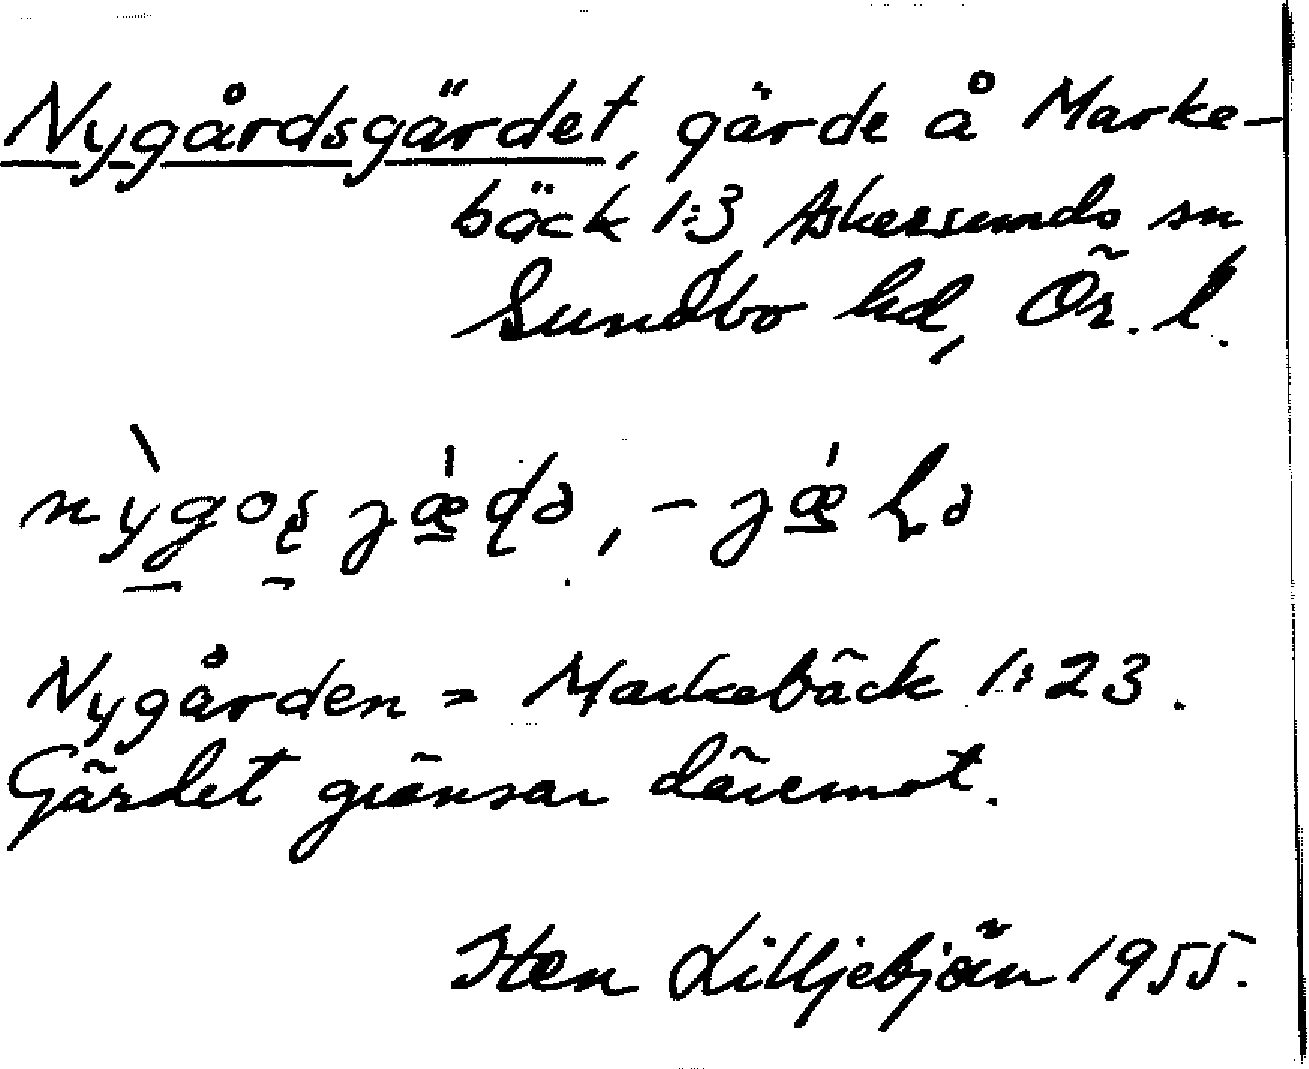 Nygårdsgärdet, gärde å Marke-
bäck 1:3 Askersunds sn
Sundbo hd, Ör. l.
Nygården = Markebäck 1:23.
Gärdet gränsar däremot.
Sten Lilljebjörn 1955.